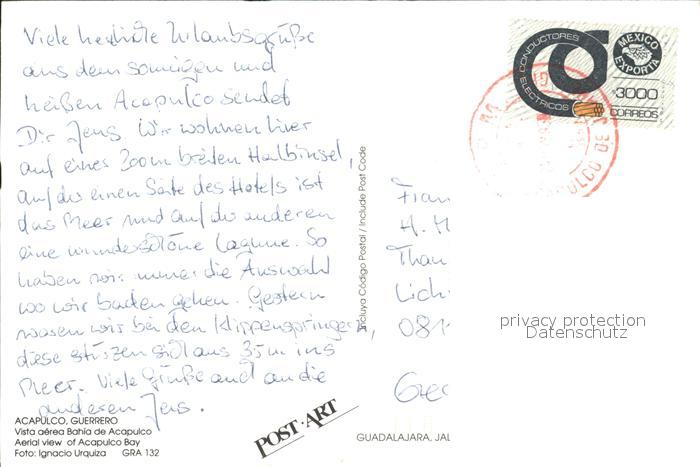 Viele herzliche Urlaubsgrüße
aus dem sonnigen und
heißen Acapulco sendet
Dir Jens. Wir wohnen hier
auf einer 300m breiten Halbinsel,
auf der einen Seite des Hotels ist
das Meer und auf der anderen
eine wunderschöne Lagune. So
haben wir immer die Auswahl
wo wir baden gehen. Gestern
waren wir bei den Klippenspringern,
diese stürzen sich aus 35m ins
Meer. Viele Grüße auch an die
anderen Jens.
ACAPULCO, GUERRERO
Vista aérea Bahía de Acapulco
Aerial view of Acapulco Bay
Foto: Ignacio Urquiza GRA 132
POST·ART
Incluya Código Postal / Include Post Code
GUADALAJARA, JAL
CONDUCTORES
ELECTRICOS
MEXICO
EXPORTA
$3000
CORREOS
H. M
Than
Lich
081
privacy protection
Datenschutz